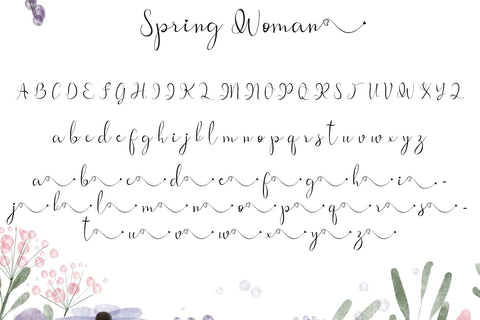 Spring Woman
A B C D E F G H I J K L M N O P Q R S T U V W X Y Z
a b c d e f g h i j k l m n o p q r s t u v w x y z
a a b a c a d a e a f a g a h a i a -
j a k a l a m a n a o a p a q a r a s a -
t a u a v a w a x a y a z a